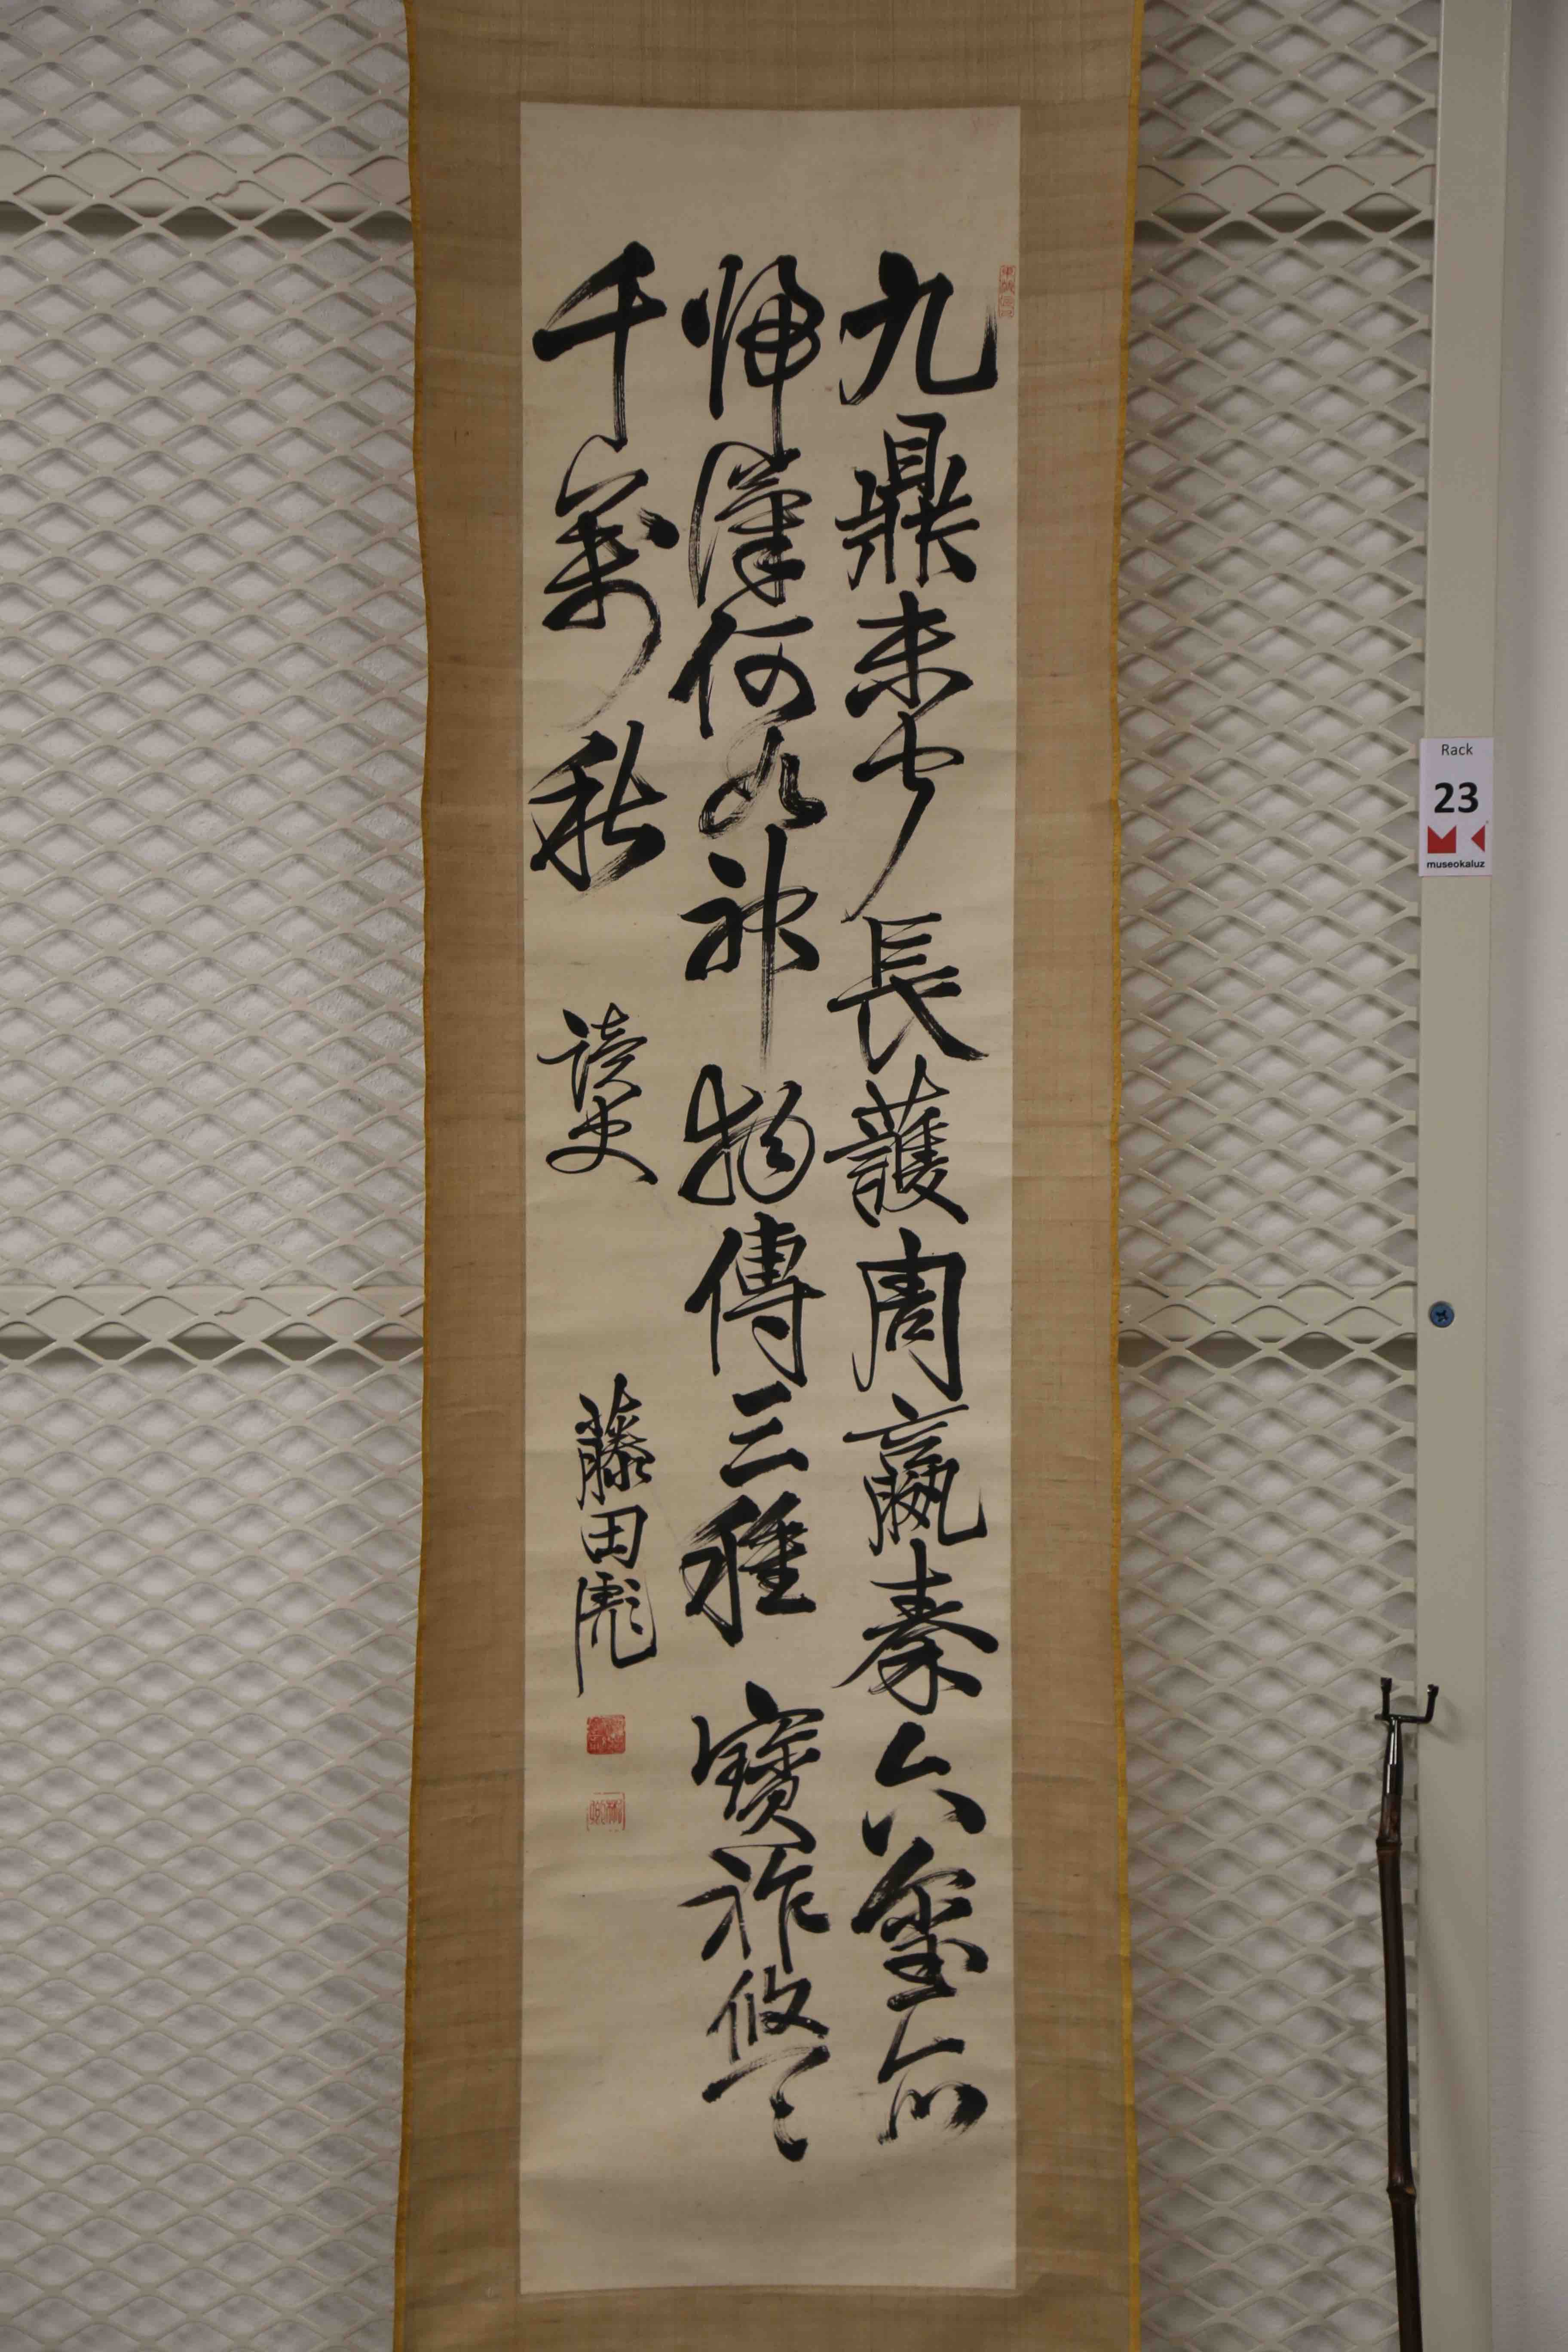 九鼎未長護周嬴秦六璽
帰漢何如神物傳三種寶祚悠々
千萬秋 読史 藤田彪
Rack
23
museokaluz